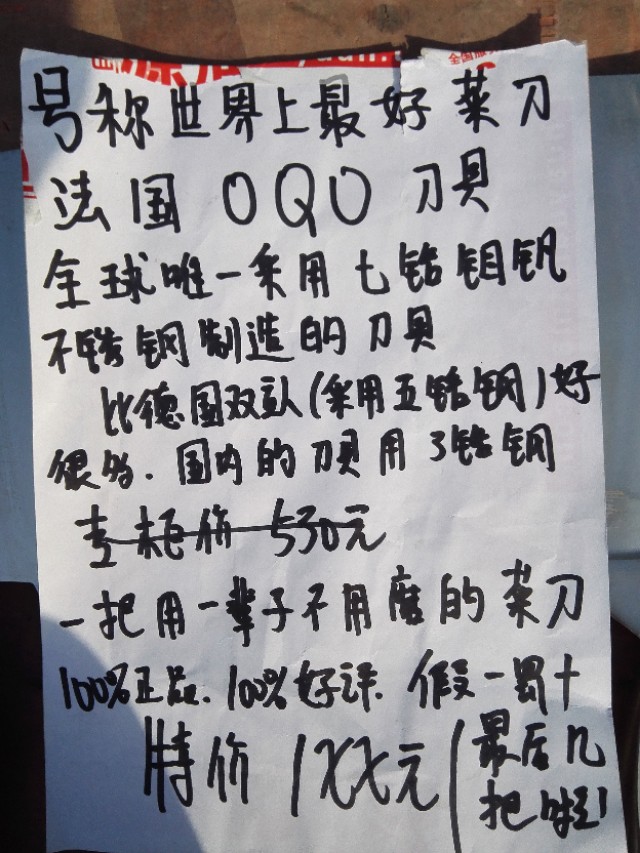 全国服
号称世界上最好菜刀
法国 OQO 刀具
全球唯一采用七铬钼钒
不锈钢制造的刀具
比德国双立人(采用五铬钢)好
很多. 国内的刀具用3铬钢
专柜价 530元
一把用一辈子不用磨的菜刀
100%正品. 100%好评. 假一罚十
特价 1XX元(最后几
把啦)